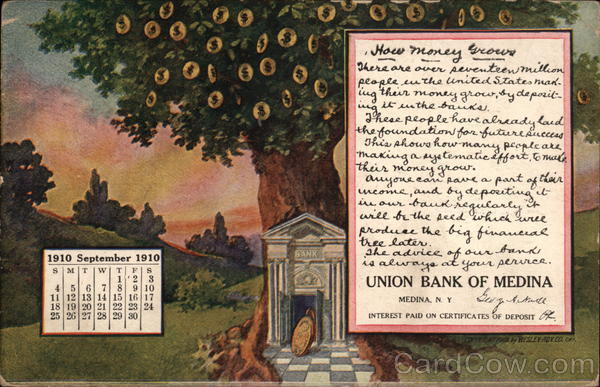 How Money Grows
There are over seventeen million
people in the United States mak-
ing their money grow, by deposit-
ing it in the banks.
These people have already laid
the foundation for future success
This shows how many people are
making a systematic effort, to make
their money grow.
Anyone can save a part of their
income, and by depositing it
in our bank regularly it
will be the seed which will
produce the big financial
tree later.
The advice of our bank
is always at your service.
UNION BANK OF MEDINA
MEDINA, N. Y
INTEREST PAID ON CERTIFICATES OF DEPOSIT
BANK
1910 September 1910
S M T W T F S
1 2 3
4 5 6 7 8 9 10
11 12 13 14 15 16 17
18 19 20 21 22 23 24
25 26 27 28 29 30
CardCow.com